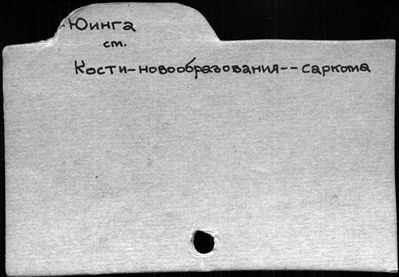 Юинга
ст.
Кости-новообразования--саркома